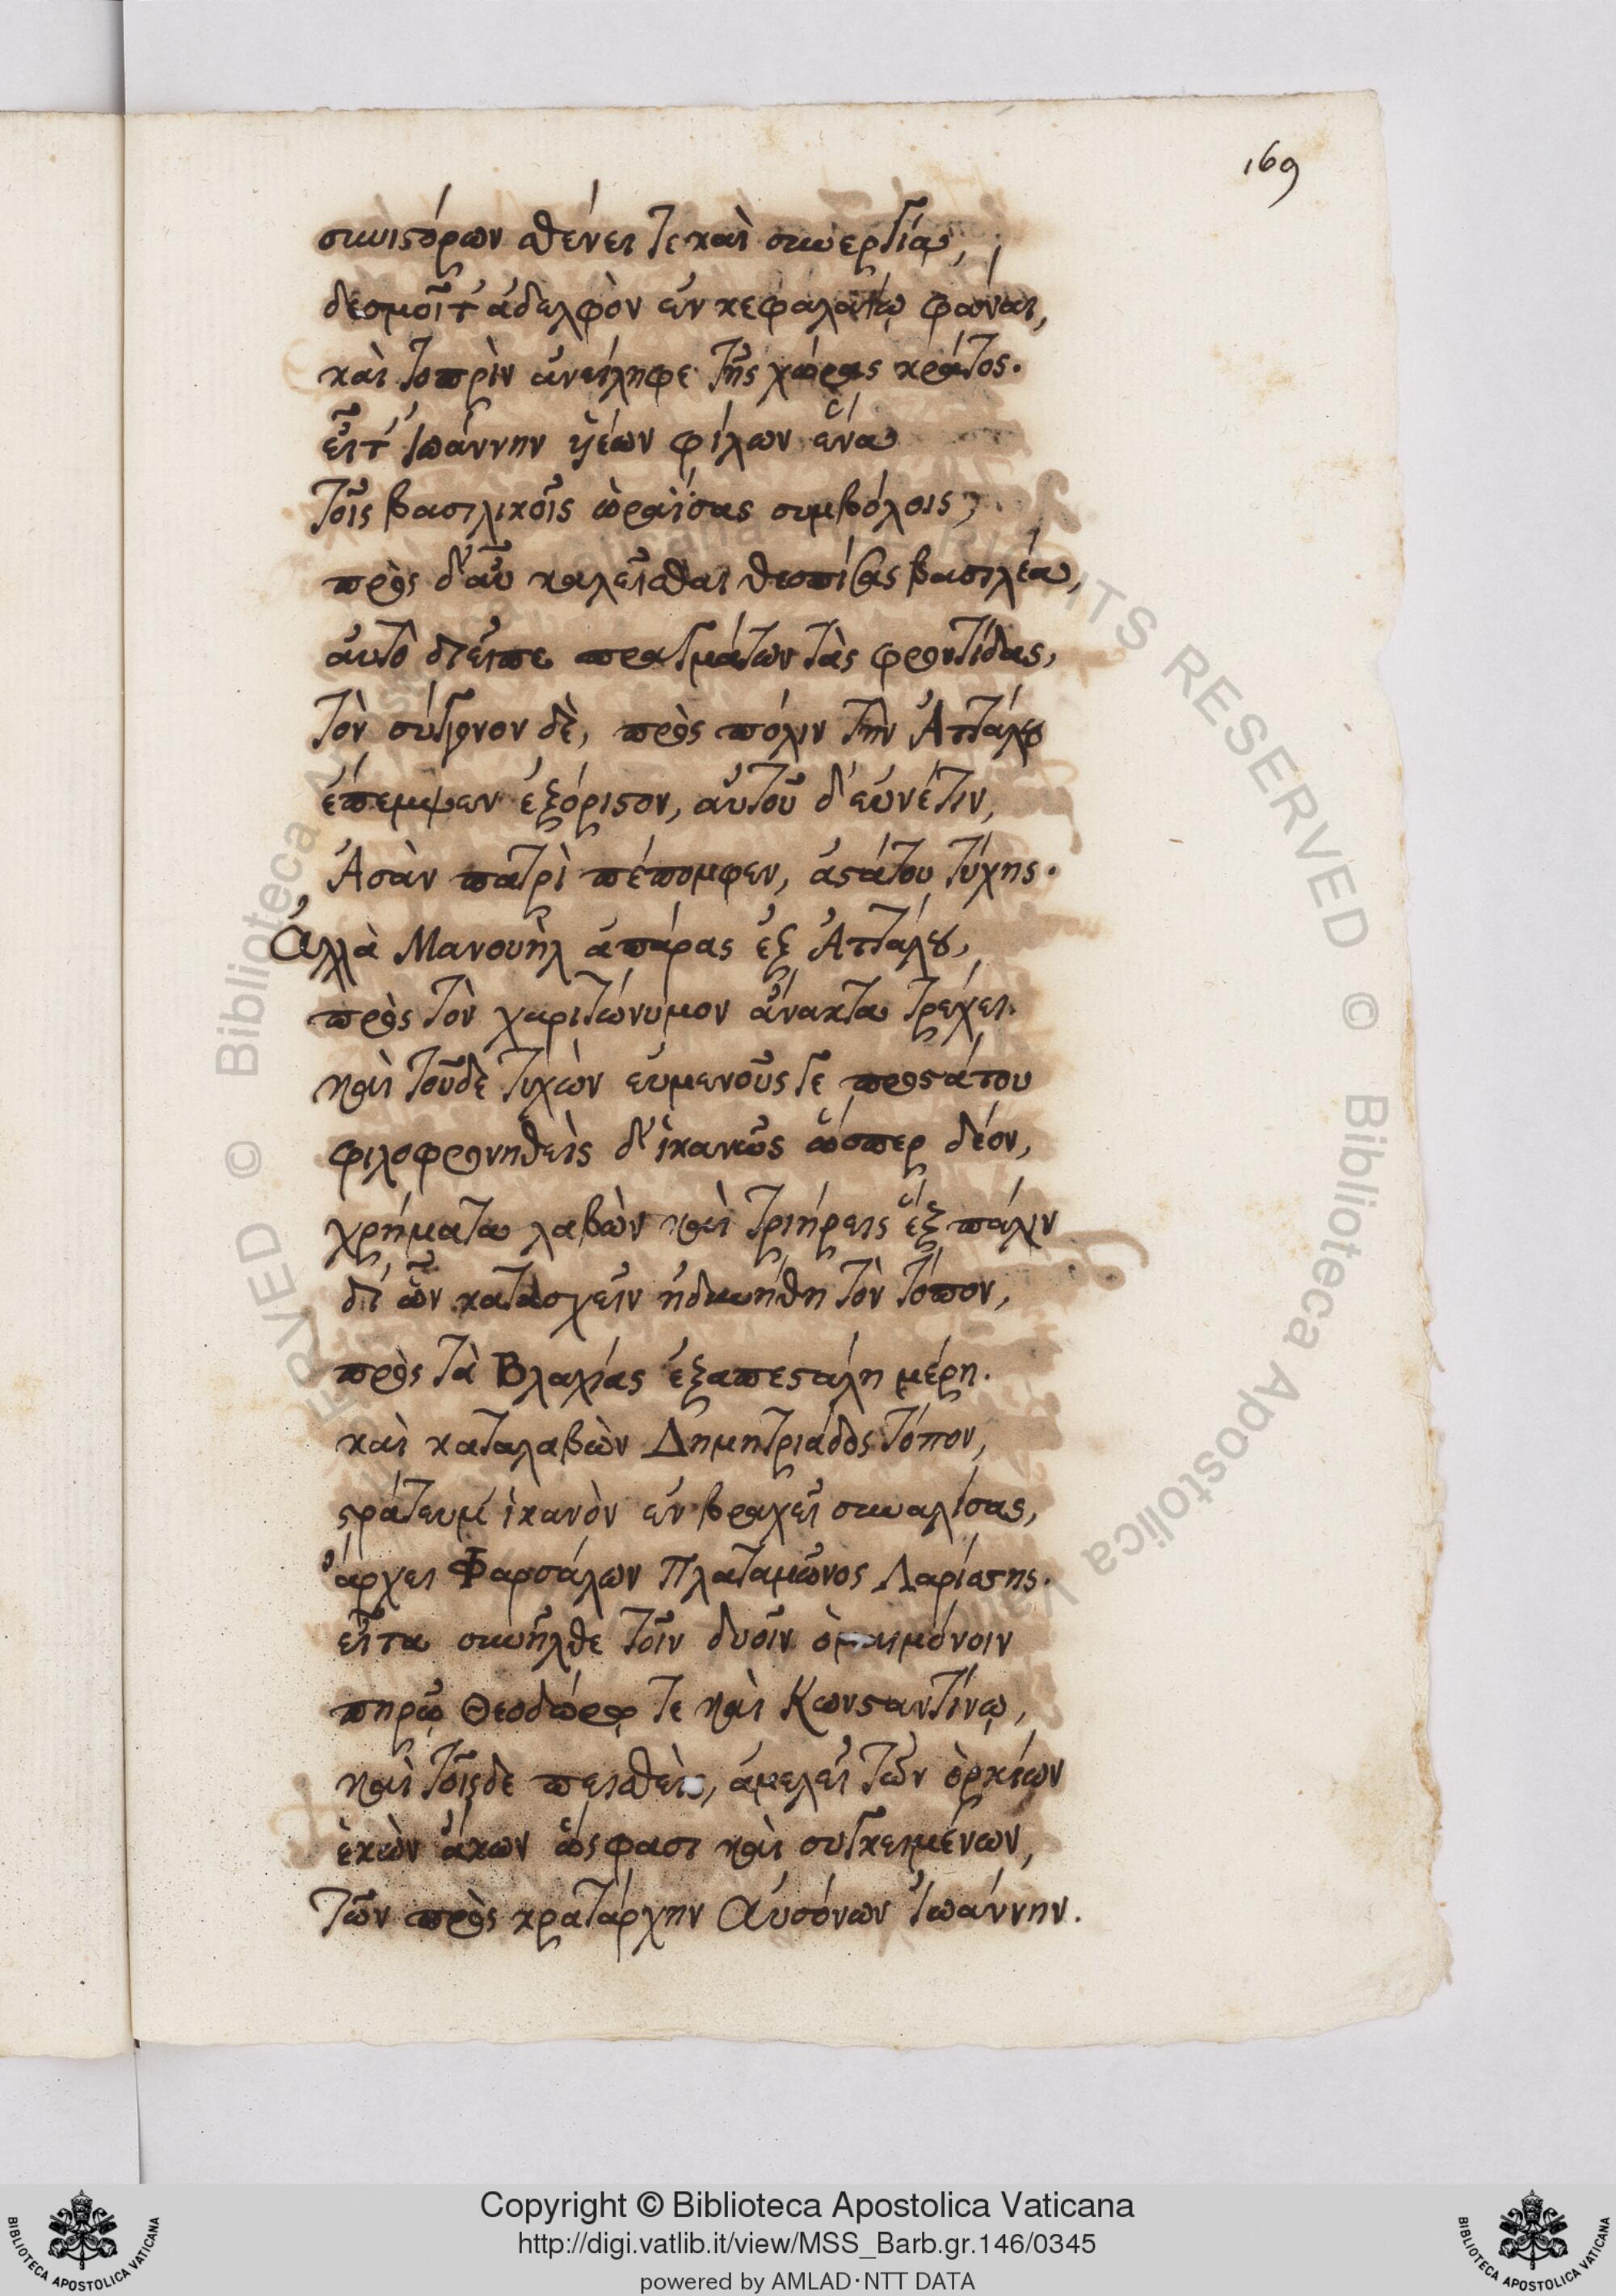 169
συνιστόρων σθένει τε καὶ συνεργίᾳ,
δεσμοῖ τ' ἀδελφὸν ἐν κεφαλαίῳ φάναι,
καὶ τοπρὶν ἀνείληφε τῆς χώρας κράτος.
εἶτ' Ἰωάννην υἱέων φίλων ἕνα
τοῖς βασιλικοῖς ὡραΐσας συμβόλοις,
πρὸς δ' αὖ καλεῖσθαι θεσπίσας βασιλέα,
αὐτὸ διεῖπε πραγμάτων τὰς φροντίδας,
τὸν σύγγονον δὲ, πρὸς πόλιν τὴν Ἀττάλου
ἔπεμψεν ἐξόριστον, αὐτοῦ δ' εὐνέτιν,
Ἀσὰν πατρὶ πέπομφεν, ἀστάτου τύχης.
Ἀλλὰ Μανουὴλ ἀπάρας ἐξ Ἀττάλου,
πρὸς τὸν χαριτώνυμον ἄνακτα τρέχει.
καὶ τοῦδε τυχὼν εὐμενοῦς τε προστάτου
φιλοφρονηθεὶς δ' ἱκανῶς ὥσπερ δέον,
χρήματα λαβὼν καὶ τριήρεις ἓξ πάλιν
δι' ὧν κατασχεῖν ἠδυνήθη τὸν τόπον,
πρὸς τὰ Βλαχίας ἐξαπεστάλη μέρη.
καὶ καταλαβὼν Δημητριάδος τόπον,
στράτευμ' ἱκανὸν ἐν βραχεῖ συναλίσας,
ἄρχει Φαρσάλων Πλαταμῶνος Λαρίσσης.
εἶτα συνῆλθε τοῖν δυοῖν ὁμαιμόνοιν
πηρῷ Θεοδώρῳ τε καὶ Κωνσταντίνῳ,
καὶ τοῖσδε πεισθεὶς, ἀμελεῖ τῶν ὁρκίων
ἑκὼν ἄκων ὥς φασι καὶ συγκειμένων,
τῶν πρὸς κρατάρχην Αὐσόνων Ἰωάννην.
© Biblioteca Apostolica Vaticana
ALL RIGHTS RESERVED
Copyright © Biblioteca Apostolica Vaticana
http://digi.vatlib.it/view/MSS_Barb.gr.146/0345
powered by AMLAD·NTT DATA
BIBLIOTECA APOSTOLICA VATICANA
BIBLIOTECA APOSTOLICA VATICANA